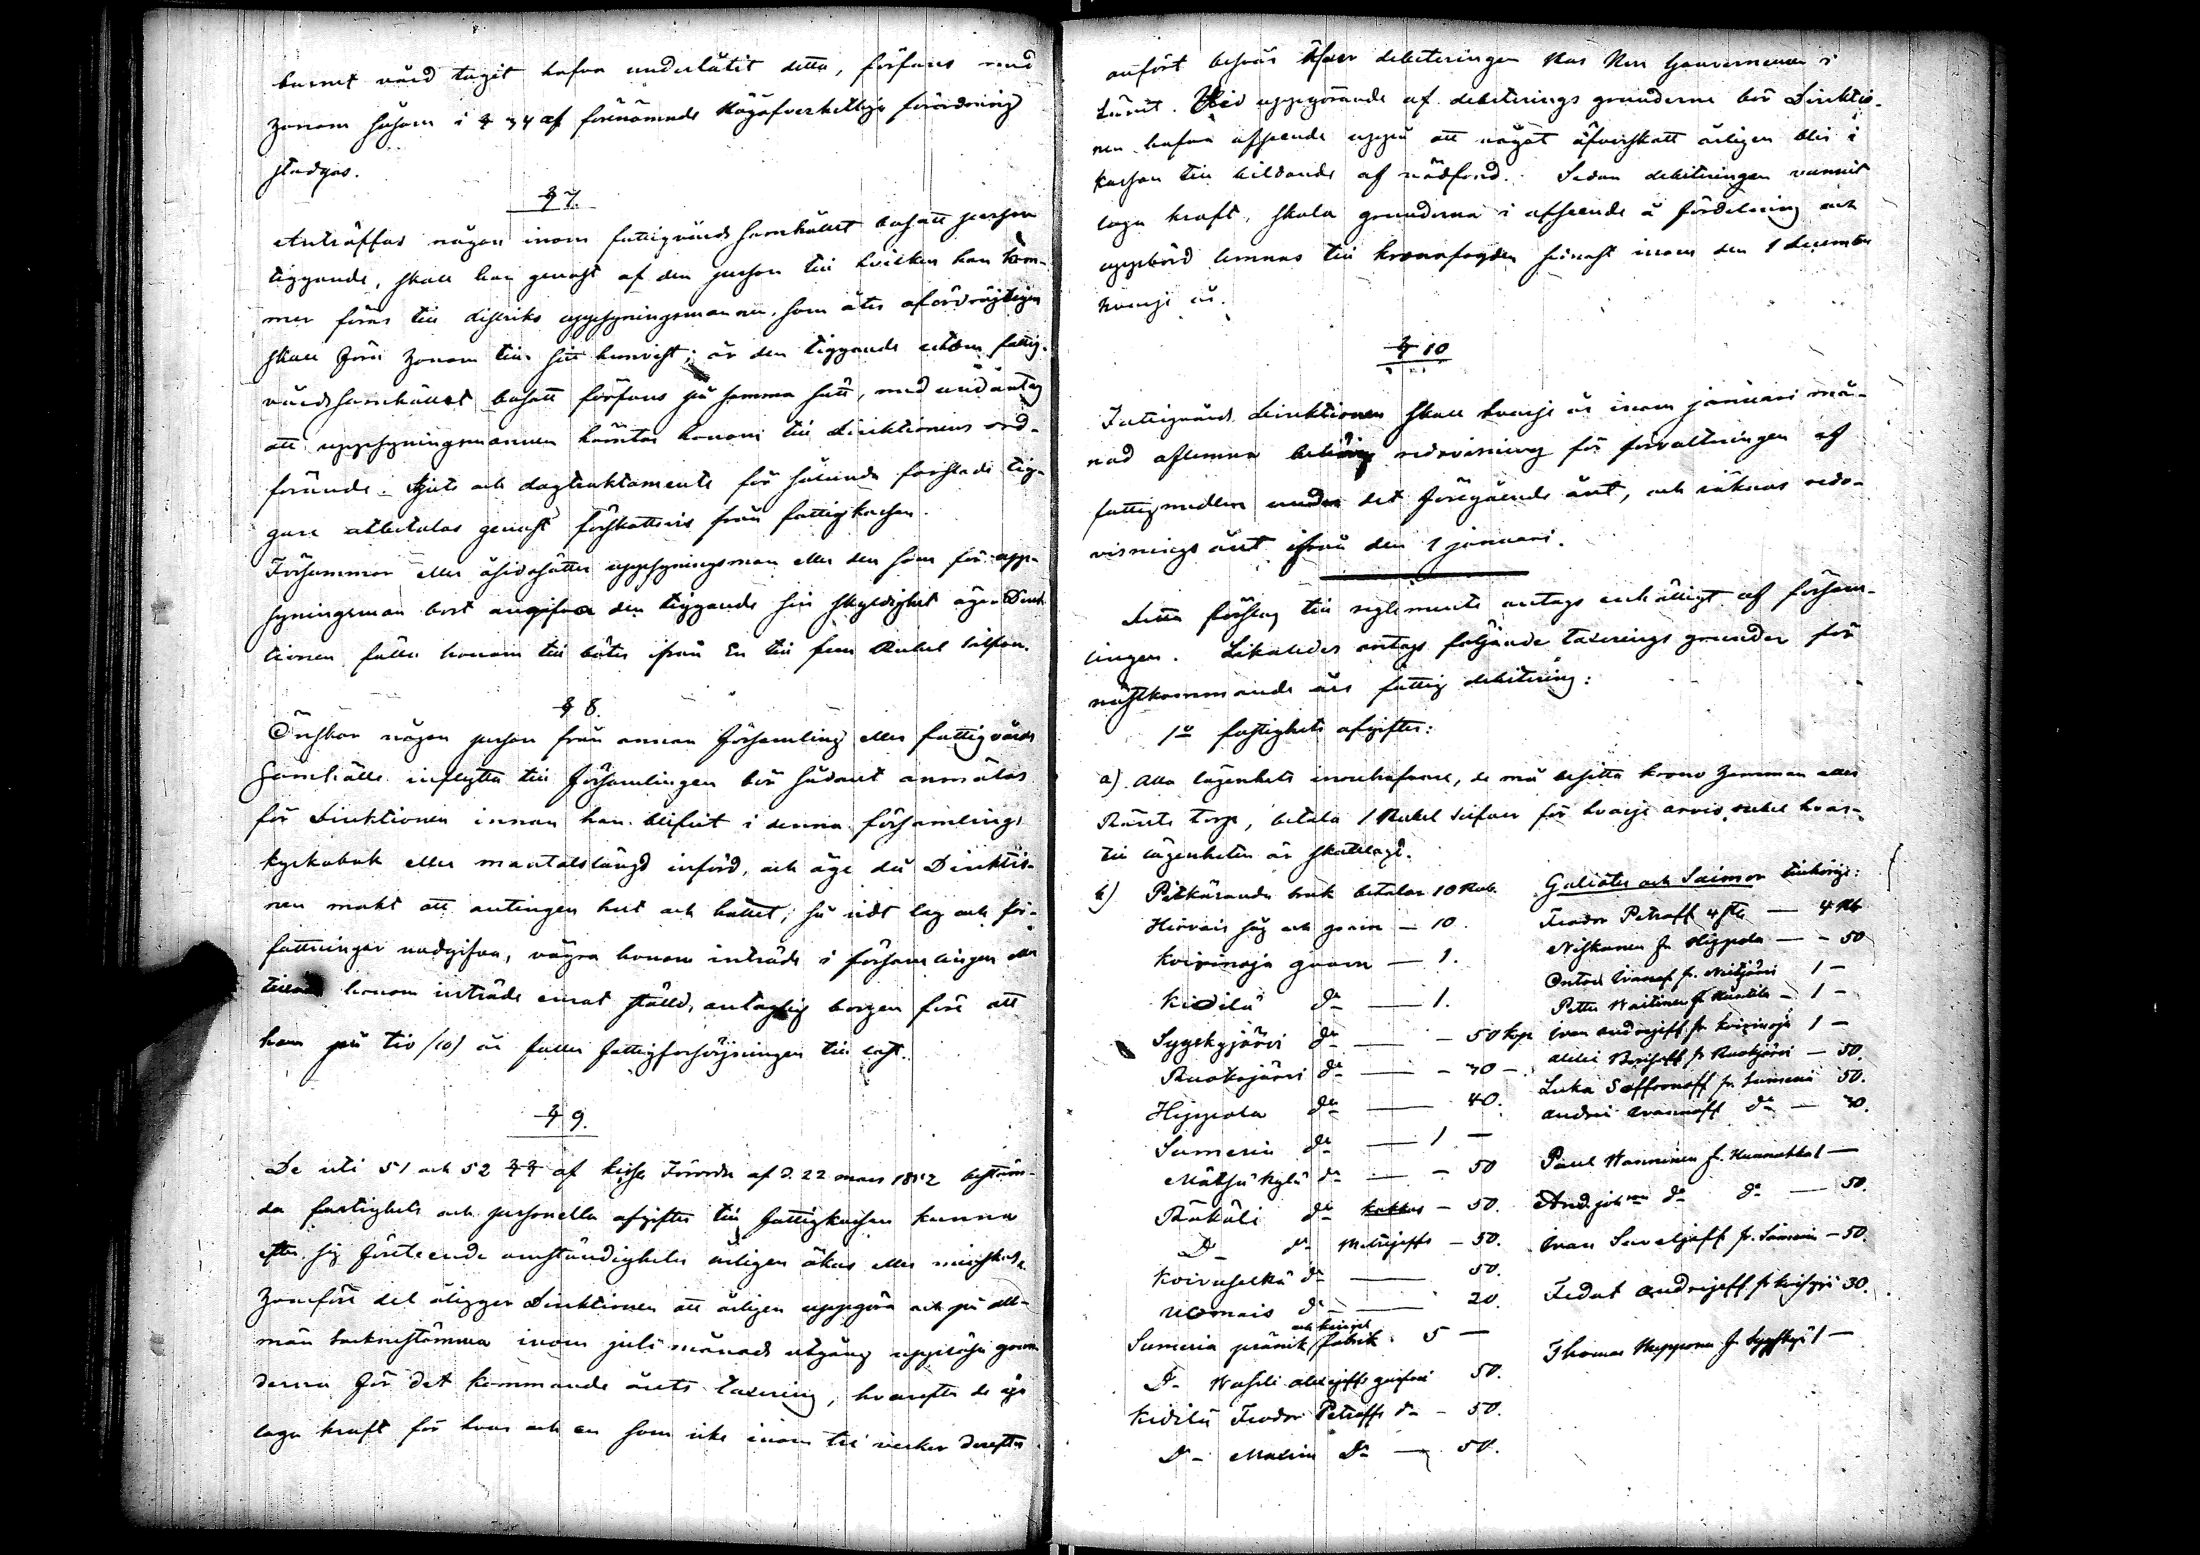 barnet vård tagit hafva underlåtit detta, förfares med
honom såsom i § 34 af förenämnde Högöfverhetliga förordning
stadgas.
§ 7.
Anträffas någon inom fattigvårdssamhället bosatt person
tiggande, skall han genast af den person till hvilken han kom-
mer föras till distrikts uppsyningsmannen, som åter ofördröjligen
skall föra honom till sitt hemvist; är den tiggande utom fattig-
vårdssamhället bosatt förfares på samma sätt, med undantag
att uppsyningsmannen hemtar honom till direktionens ord-
förande. Skjuts och dagtraktamente för sålunda forslade tig-
gare utbetalas genast förskottsvis från fattigkassan.
Försummar eller åsidosätter uppsyningsman eller den som för upp-
syningsman bort angifva den tiggande sin skyldighet äger Direk-
tionen fälla honom till böter ifrån En till fem Rubel silfver.
§ 8.
Önskar någon person från annan församling eller fattigvårds
samhälle inflytta till församlingen bör sådant anmälas
för Direktionen innan han blifvit i denna församlings
kyrkobok eller mantalslängd införd, och äge då Direktio-
nen makt att antingen helt och hållet, så vidt lag och för-
fattningar medgifva, vägra honom inträde i församlingen eller
tillåta honom inträde emot ställd, antaglig borgen före att
han på tio /10/ år faller fattigförsörjningen till last.
§ 9.
De uti 51 och 52 §§ af Kejs. Förordn. af d. 22 mars 1852 bestäm-
da fastighets och personella afgifter till fattigkassan kunna
efter sig företeende omständigheter årligen ökas eller minskas,
hvarföre det åligger Direktionen att årligen uppgöra och på all-
män sockenstämma inom juli månads utgång uppläsa grun-
derna för det kommande årets taxering, hvarefter de äga
laga kraft för hvar och en som icke inom tre veckor derefter
anfört besvär öfver debiteringen hos Herr Gouverneuren i
Länet. Vid uppgörande af debiterings grunderne bör Direktio-
nen hafva afseende uppå att något öfverskott årligen blir i
kassan till bildande af nödfond. Sedan debiteringen vunnit
laga kraft, skola grunderna i afseende å fördelning och
uppbörd lemnas till kronofogden senast inom den 1 december
hvarje år.
§ 10
Fattigvårds direktionen skall hvarje år inom januari må-
nad aflemna behörig redovisning för förvaltningen af
fattigmedlen under det föregående året, och räknas redo-
visnings året ifrån den 1 januari.
Detta förslag till reglemente antogs enhälligt af försam-
lingen. Likaledes antogs följande taxerings grunder för
nästkommande års fattig debitering:
1o fastighets afgifter:
a) Alla lägenhets innehafvare, de må besitta krono hemman eller
Ränte torp, betala 1 Rubel Silfver för hvarje arvio rubel hvar-
till lägenheten är skattlagd.
b) Pitkäranda bruk betalar 10 Rub.
Hirvois såg och qvarn — 10.
Koirinoja qvarn — 1.
Kidilä do — 1.
Syyskyjärvi do — 50 kop
Ruokojärvi do — 70 —
Hippola do — 40.
Sumeria do — 1 —
Mätäskylä do — 50
Räkäli do — 50.
Do do — 50.
Koiraselkä do — 50.
Uomais do — 20.
Sumeria fabrik 5 —
Do Wasili 50.
Kidilä Feodor Petroffs do — 50.
Do — do — 50.
Galioter och Saimor tillhörige:
Feodor Petroff 4 st. — 4 Rb
Niskanen fr. Hippola — 50
Ivanoff fr. 1 —
Petter fr. 1 —
Ivan Andrejeff fr. Koirinoja 1 —
fr. Ruokojärvi — 50.
Luka Saffronoff fr. Sumeria 50.
Andrei do — 70.
Paul Wanninen fr. Hunnukka 1 —
do do — 50.
Ivan Saveljeff fr. Sumeria — 50.
Fedot Andrejeff fr. 30.
Thomas Hupponen fr. Syyskyj. 1 —